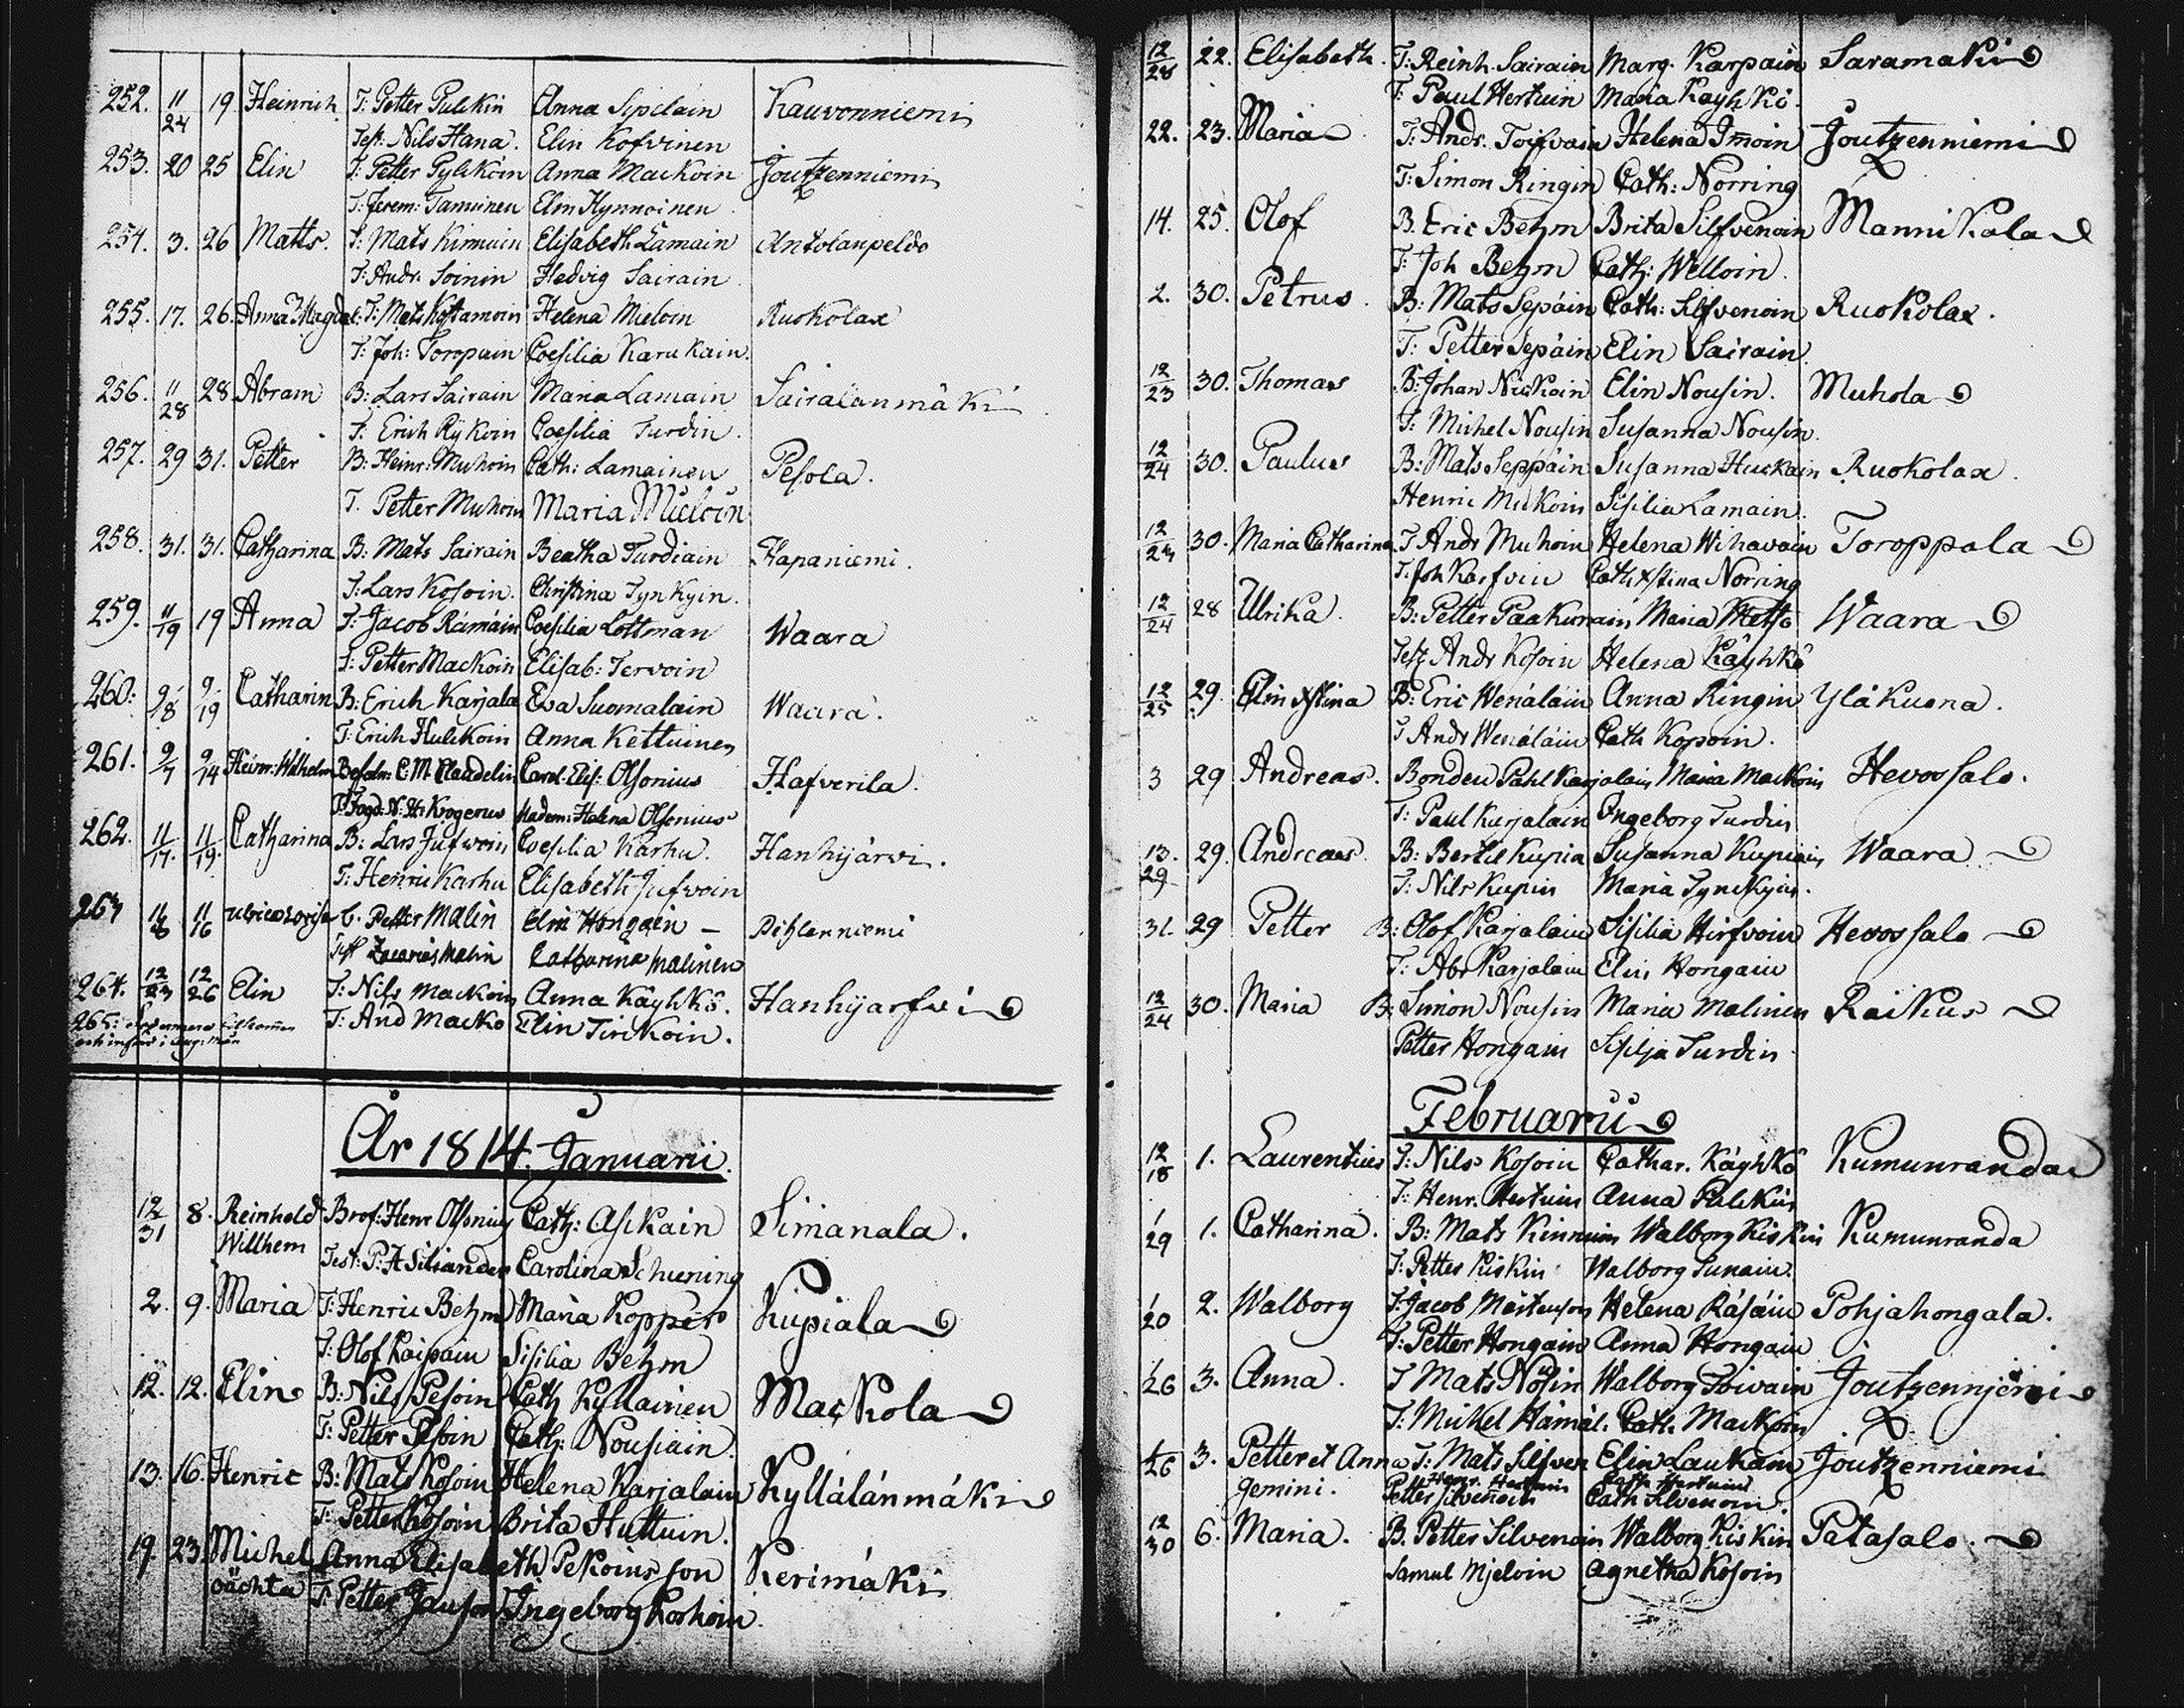 252. 11/24 19 Heinrich T: Petter Pulkin Anna Sipelain Kauvonniemi
Test: Nils Hana. Elin Kofvinen
253. 20 25 Elin T: Petter Pylkköin Anna Mackoin Joutzenniemi
T: Jerem: Tamminen Elin Hynnoinen
254. 3. 26 Matts. T: Mats Kinnuin Elisabeth Lamain Antolanpeldo
T: Andr. Soinin Hedvig Sairain
255. 17. 26. Anna Magdal: T: Mats Kostamoin Helena Mieloin Ruokolax
T: Joh: Toropain Coesilia Karukain.
256. 11/28 28 Abram B: Lars Sairain Maria Lamain Sairalanmäki
T: Erich Rykoin Coesilia Turdin.
257. 29 31. Petter B: Heinr: Muhoin Cath: Lamainen Pesola.
T. Petter Muhoin Maria Mieloin
258. 31. 31. Catharina B: Mats Sairain Beatha Turdiain Hapaniemi.
T: Lars Kosoin. Christina Tynkyin.
259. 11/19 19 Anna T: Jacob Rämäin Coesilia Lottman Waara
T: Petter Mackoin Elisab: Tervoin
260: 9/18 9/19 Catharin B: Erich Karjala Eva Suomalain Waara.
T: Erich Hulkoin Anna Kettuinen
261. 9/7 9/14 Heinr: Wilhelm Befalm: C: M. Claudelin Carol: Elis: Olsonius Hafverila.
T: Fogd: N: Hr Krogerus Madem: Helena Olsonius
262. 11/17. 11/19. Catharina B: Lars Jufvoin Coesilia Karhu. Hanhijärvi.
T: Henric Karhu Elisabeth Jufvoin
263 11/8 11/16 Ulrica Lovisa B. Petter Malin Elin Hongain – Pihlanniemi
Test Zacarias Malin Catharina Malinen
264. 12/23 12/26 Elin T: Nils Mackoin Anna Käyhkö. Hanhijarfvi
T: And Macko Elin Tirikoin.
265:
Är 1814. Januarii.
12/31 8. Reinhold Brof: Henr Olsonius Cath: Askain Simanala.
Willhem Test: P: H Siliander Carolina Schiening
2. 9. Maria T: Henric Behm Maria Kopper Kupiala
T: Olof Kaipain Sisilia Behm
12. 12. Elin B: Nils Pesoin Cath Kyllainen Mackola
T: Petter Pesoin Cath: Nousiain.
13. 16. Henric B: Mats Kosoin Helena Karjalain Kyllälänmäki
T: Petter Kosoin Brita Huttuin.
19. 23. Michel Anna Elisabeth Pekoins son Kerimäki
oächta T: Petter Jauson Ingeborg Korhoin.
12/28 22. Elisabeth. T: Reinh. Sairain Marg. Karpain Saramaki
T: Paul Hertuin Maria Kayhkö.
22. 23. Maria T: Andr. Toifvain Helena Imoin Joutzenniemi
T: Simon Ringin Cath: Norring
14. 25. Olof B. Eric Behm Brita Silfvenoin Mannikala
T: Joh Behm Cath: Welloin.
2. 30. Petrus. B: Mats Sepäin Cath: Silfvenoin Ruokolax.
T: Petter Sepäin Elin Sairain.
12/23 30. Thomas B: Johan Nickoin Elin Nousin. Muhola
T: Michel Nousin Susanna Nousin.
12/24 30. Paulus B: Mats Seppäin Susanna Huckain Ruokolax.
Henric Mickoin Sisilia Lamain.
12/23 30. Maria Catharina T Andr Muhoin Helena Wihavain Toroppala
T: Joh Karfvin Cath Xstina Norring
12/24 28 Ulrika. B: Petter Paakunain Maria Metso Waara
Test Andr Kosoin Helena Käyhkö
12/25 29. Elin Xstina B: Eric Wenäläin Anna Ringin Yläkuona.
T Andr Wenäläin Cath Kopoin.
3 29 Andreas. Bonden Pahl Karjalain Maria Mackoin Hevossalo.
T: Paul Karjalain Ingeborg Turdin
13. 29. Andreas. B: Bertil Kupia Susanna Kupiain Waara
29 T: Nils Kupin Maria Tynckyin.
31. 29 Petter B: Olof Karjalain Sisilia Hirfvoin Hevossalo
T: Abr Karjalain Elin Hongain
12/24 30. Maria B: Simon Nousin Maria Malinen Raikus
Petter Hongain Sisilja Turdin
Februarii
12/18 1. Laurentius T: Nils Kosoin Cathar. Käyhkö Kumunranda
T: Henr. Hertuin Anna Pulckin
1/29 1. Catharina. B: Mats Kinnuin Walborg Kiskin Kumunranda
T: Petter Kiskin Walborg Sunain.
1/20 2. Walborg T: Jacob Mårtenson Helena Räsäin Pohjahongala.
T: Petter Hongain Anna Hongain
1/26 3. Anna. T Mats Nösin Walborg Toivain Joutzennjemi
T: Michel Hämäl. Cath. Mackoin
1/26 3. Petter et Anna T: Mats Silfven Elin Laukain Joutzenniemi
Henr. Hertuin Cath Hertuin
gemini. Petter Silvenoin Cath Silvenoin.
12/30 6. Maria. B. Petter Silvenoin Walborg Kiskin Patasalo.
Samul Mjeloin Agnetha Kosoin